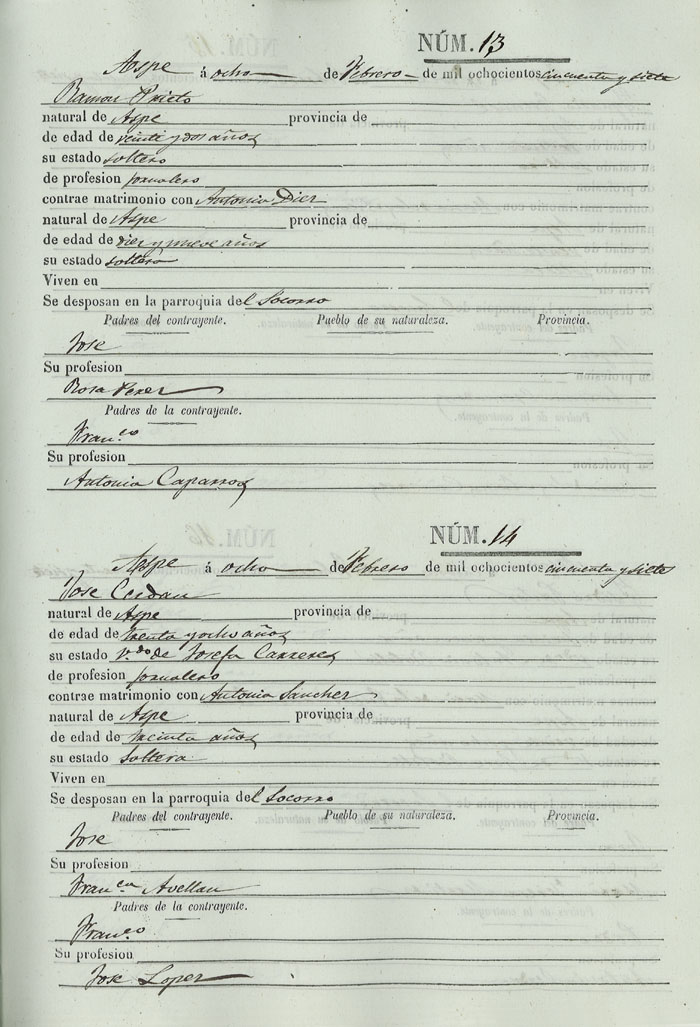 NÚM. 13
Aspe á ocho de Febrero de mil ochocientos cincuenta y siete
Ramon Prieto
natural de Aspe provincia de
de edad de veinte y dos años
su estado soltero
de profesion jornalero
contrae matrimonio con Antonia Dier
natural de Aspe provincia de
de edad de dier y nueve años
su estado soltera
Viven en
Se desposan en la parroquia del Socorro
Padres del contrayente. Pueblo de su naturaleza. Provincia.
Jose
Su profesion
Rosa Perer
Padres de la contrayente.
Fran.co
Su profesion
Antonia Caparros
NÚM. 14
Aspe á ocho de Febrero de mil ochocientos cincuenta y siete
Jose Cerdan
natural de Aspe provincia de
de edad de treinta y ocho años
su estado v.do de Josefa Carreres
de profesion jornalero
contrae matrimonio con Antonia Sancher
natural de Aspe provincia de
de edad de años
su estado Soltera
Viven en
Se desposan en la parroquia del Socorro
Padres del contrayente. Pueblo de su naturaleza. Provincia.
Jose
Su profesion
Fran.ca Avellan
Padres de la contrayente.
Fran.co
Su profesion
Jose Loper